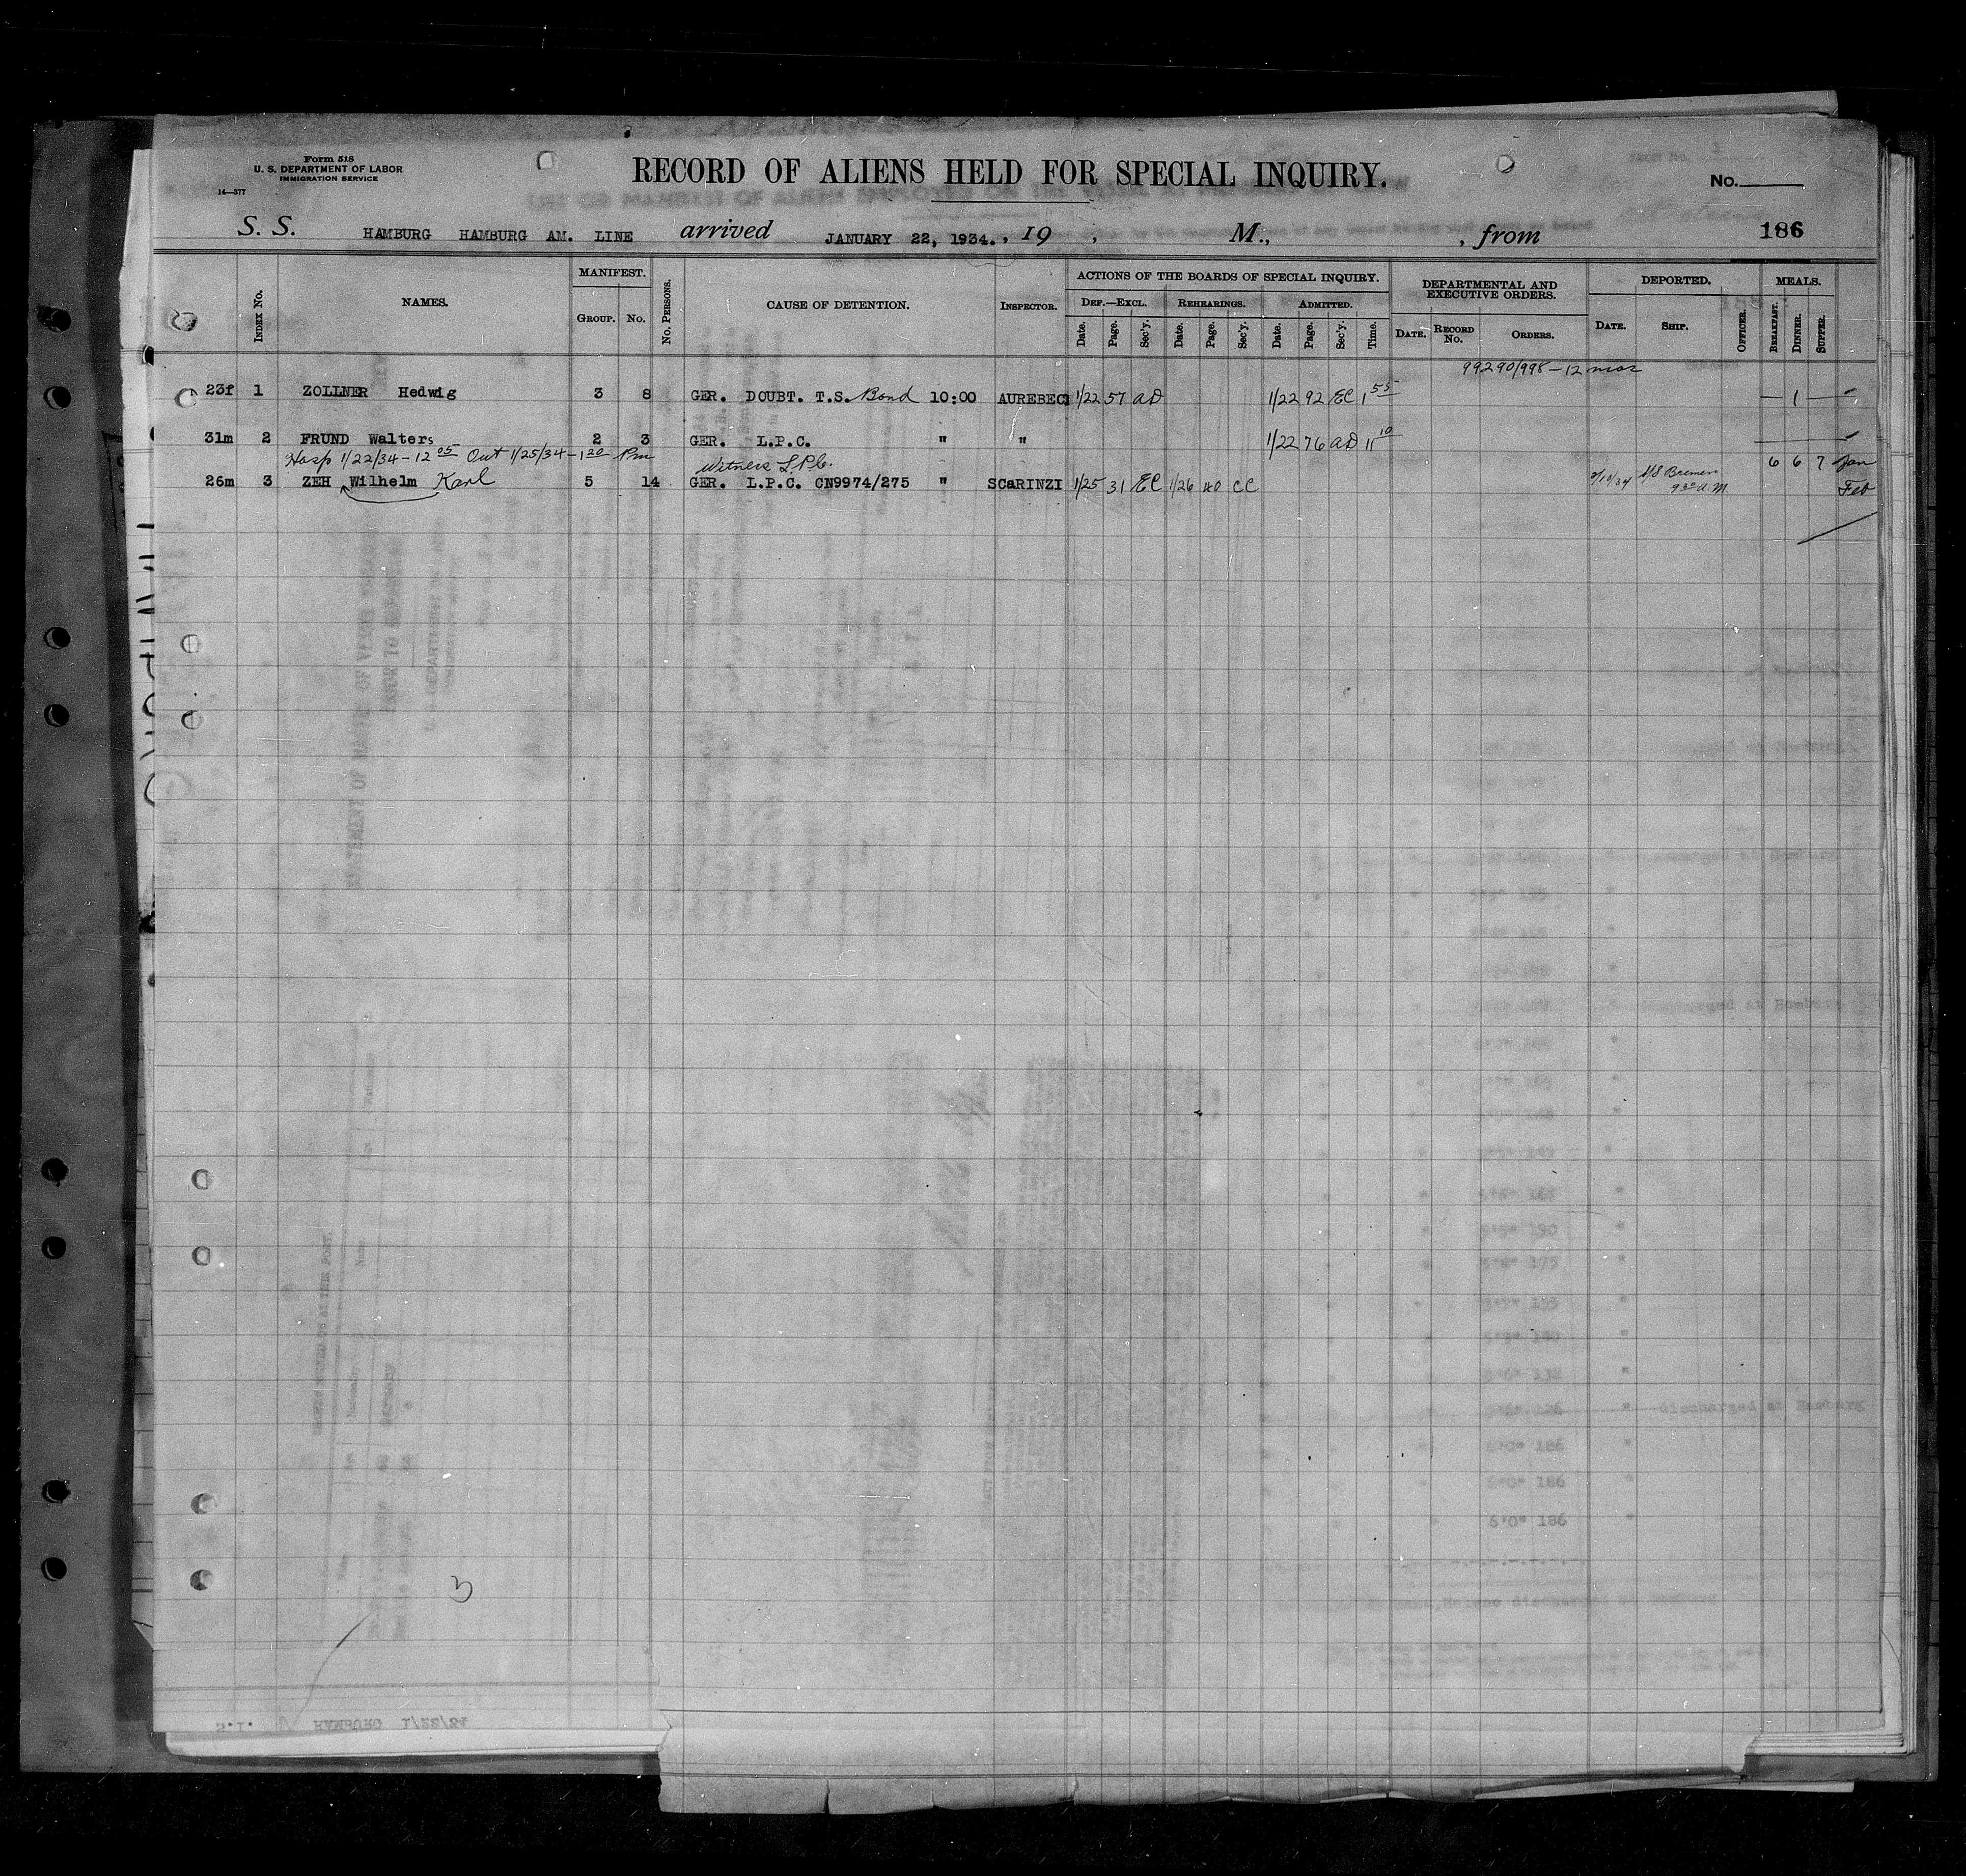 Form 518
U. S. DEPARTMENT OF LABOR
IMMIGRATION SERVICE
14—577
RECORD OF ALIENS HELD FOR SPECIAL INQUIRY.
No.
S. S. HAMBURG HAMBURG AM. LINE arrived JANUARY 22, 1934. , 19 , M., , from 186
INDEX No. NAMES. MANIFEST. GROUP. No. No. PERSONS. CAUSE OF DETENTION. INSPECTOR. ACTIONS OF THE BOARDS OF SPECIAL INQUIRY. DEF.—EXCL. Date. Page. Sec'y. REHEARINGS. Date. Page. Sec'y. ADMITTED. Date. Page. Sec'y. Time. DEPARTMENTAL AND EXECUTIVE ORDERS. DATE. RECORD No. ORDERS. DEPORTED. DATE. SHIP. OFFICER. MEALS. BREAKFAST. DINNER. SUPPER.
99290/998 - 12 mos
23f 1 ZOLLNER Hedwig 3 8 GER. DOUBT. T.S. Bond 10:00 AUREBECI 1/22 57 AD 1/22 92 EC 1 55 — 1 —
31m 2 FRUND Walters 2 3 GER. L.P.C. " " 1/22 76 AD 11 10
Hosp 1/22/34 - 12 05 Out 1/25/34 - 1 20 Pm Witness L.P.C. 6 6 7 Jan
26m 3 ZEH Wilhelm Karl 5 14 GER. L.P.C. CN9974/275 " SCARINZI 1/25 31 EC 1/26 CC S/S Bremen
9 30 A.M. Feb
3
S.I. HAMBURG 1/22/34